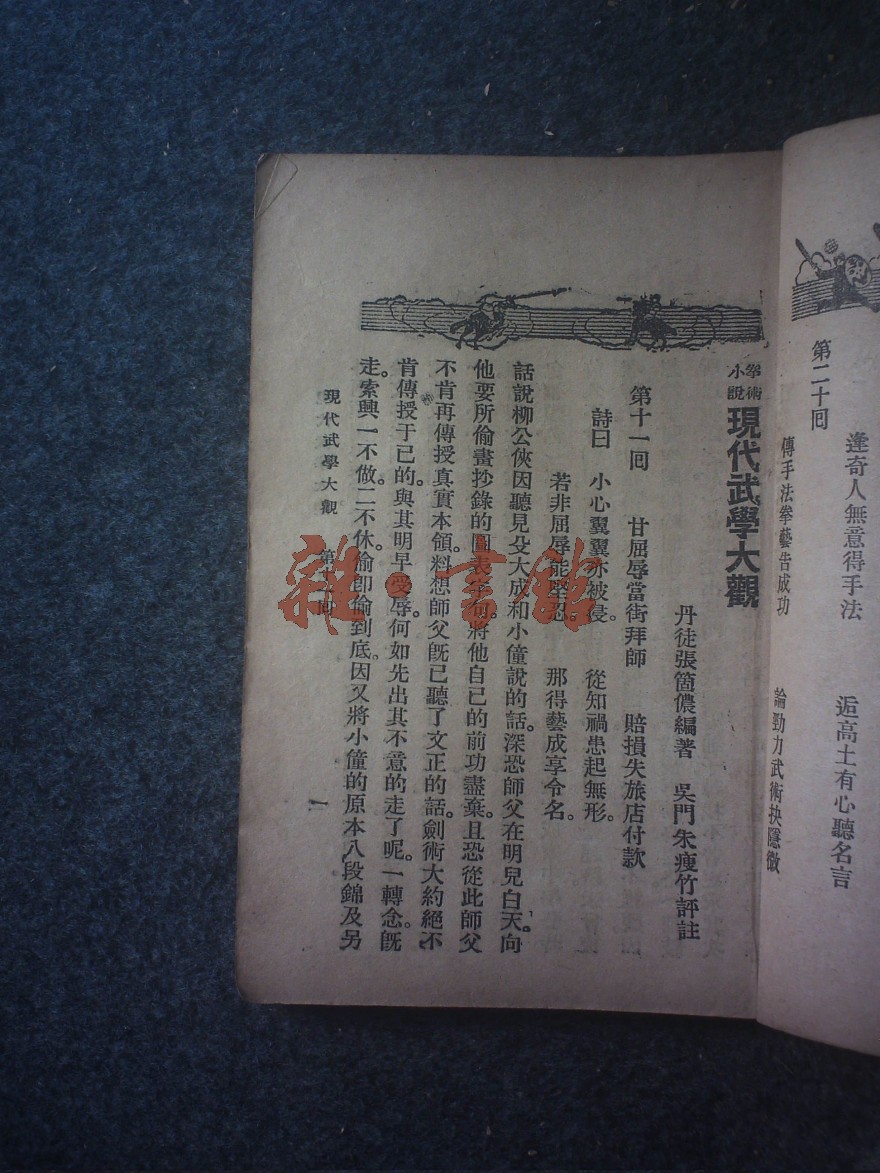 第二十回　逢奇人無意得手法　逅高士有心聽名言
傳手法拳藝告成功　論勁力武術抉隱微
拳術小說
現代武學大觀
丹徒張箇儂編著　吳門朱瘦竹評註
第十一回　甘屈辱當街拜師　賠損失旅店付款
詩曰　小心翼翼亦被侵。　從知禍患起無形。
若非屈辱能堅忍。　那得藝成享令名。
話說柳公俠因聽見殳大成和小僮說的話。深恐師父在明兒白天。向
他要所偷畫抄錄的圖表字句。將他自己的前功盡棄。且恐從此師父
不肯再傳授真實本領。料想師父旣已聽了文正的話。劍術大約絕不
肯傳授于已的。與其明早受辱。何如先出其不意的走了呢。一轉念。旣
走。索興一不做。二不休。偷卽偷到底。因又將小僮的原本八段錦及另
現代武學大觀　第十一回　一
雜·書館